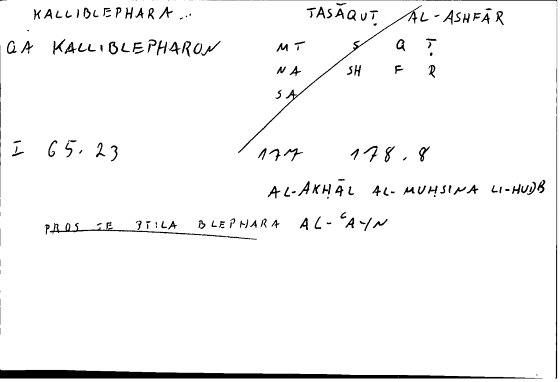 KALLIBLEPHARA... TASĀQUṬ AL-ASHFĀR
QA KALLIBLEPHARON MT S Q Ṭ
NA SH F R
SA
I 65.23 177 178.8
AL-AKḤĀL AL-MUḤSINA LI-HUDB
PROS TE PTILA BLEPHARA AL-ʿAYN